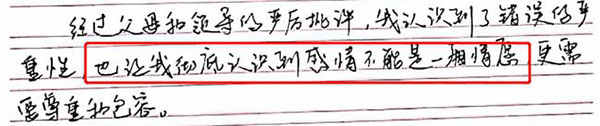 经过父母和领导的严厉批评，我认识到了错误的严
重性，也让我彻底认识到感情不能是一相情愿，更需
要尊重和包容。